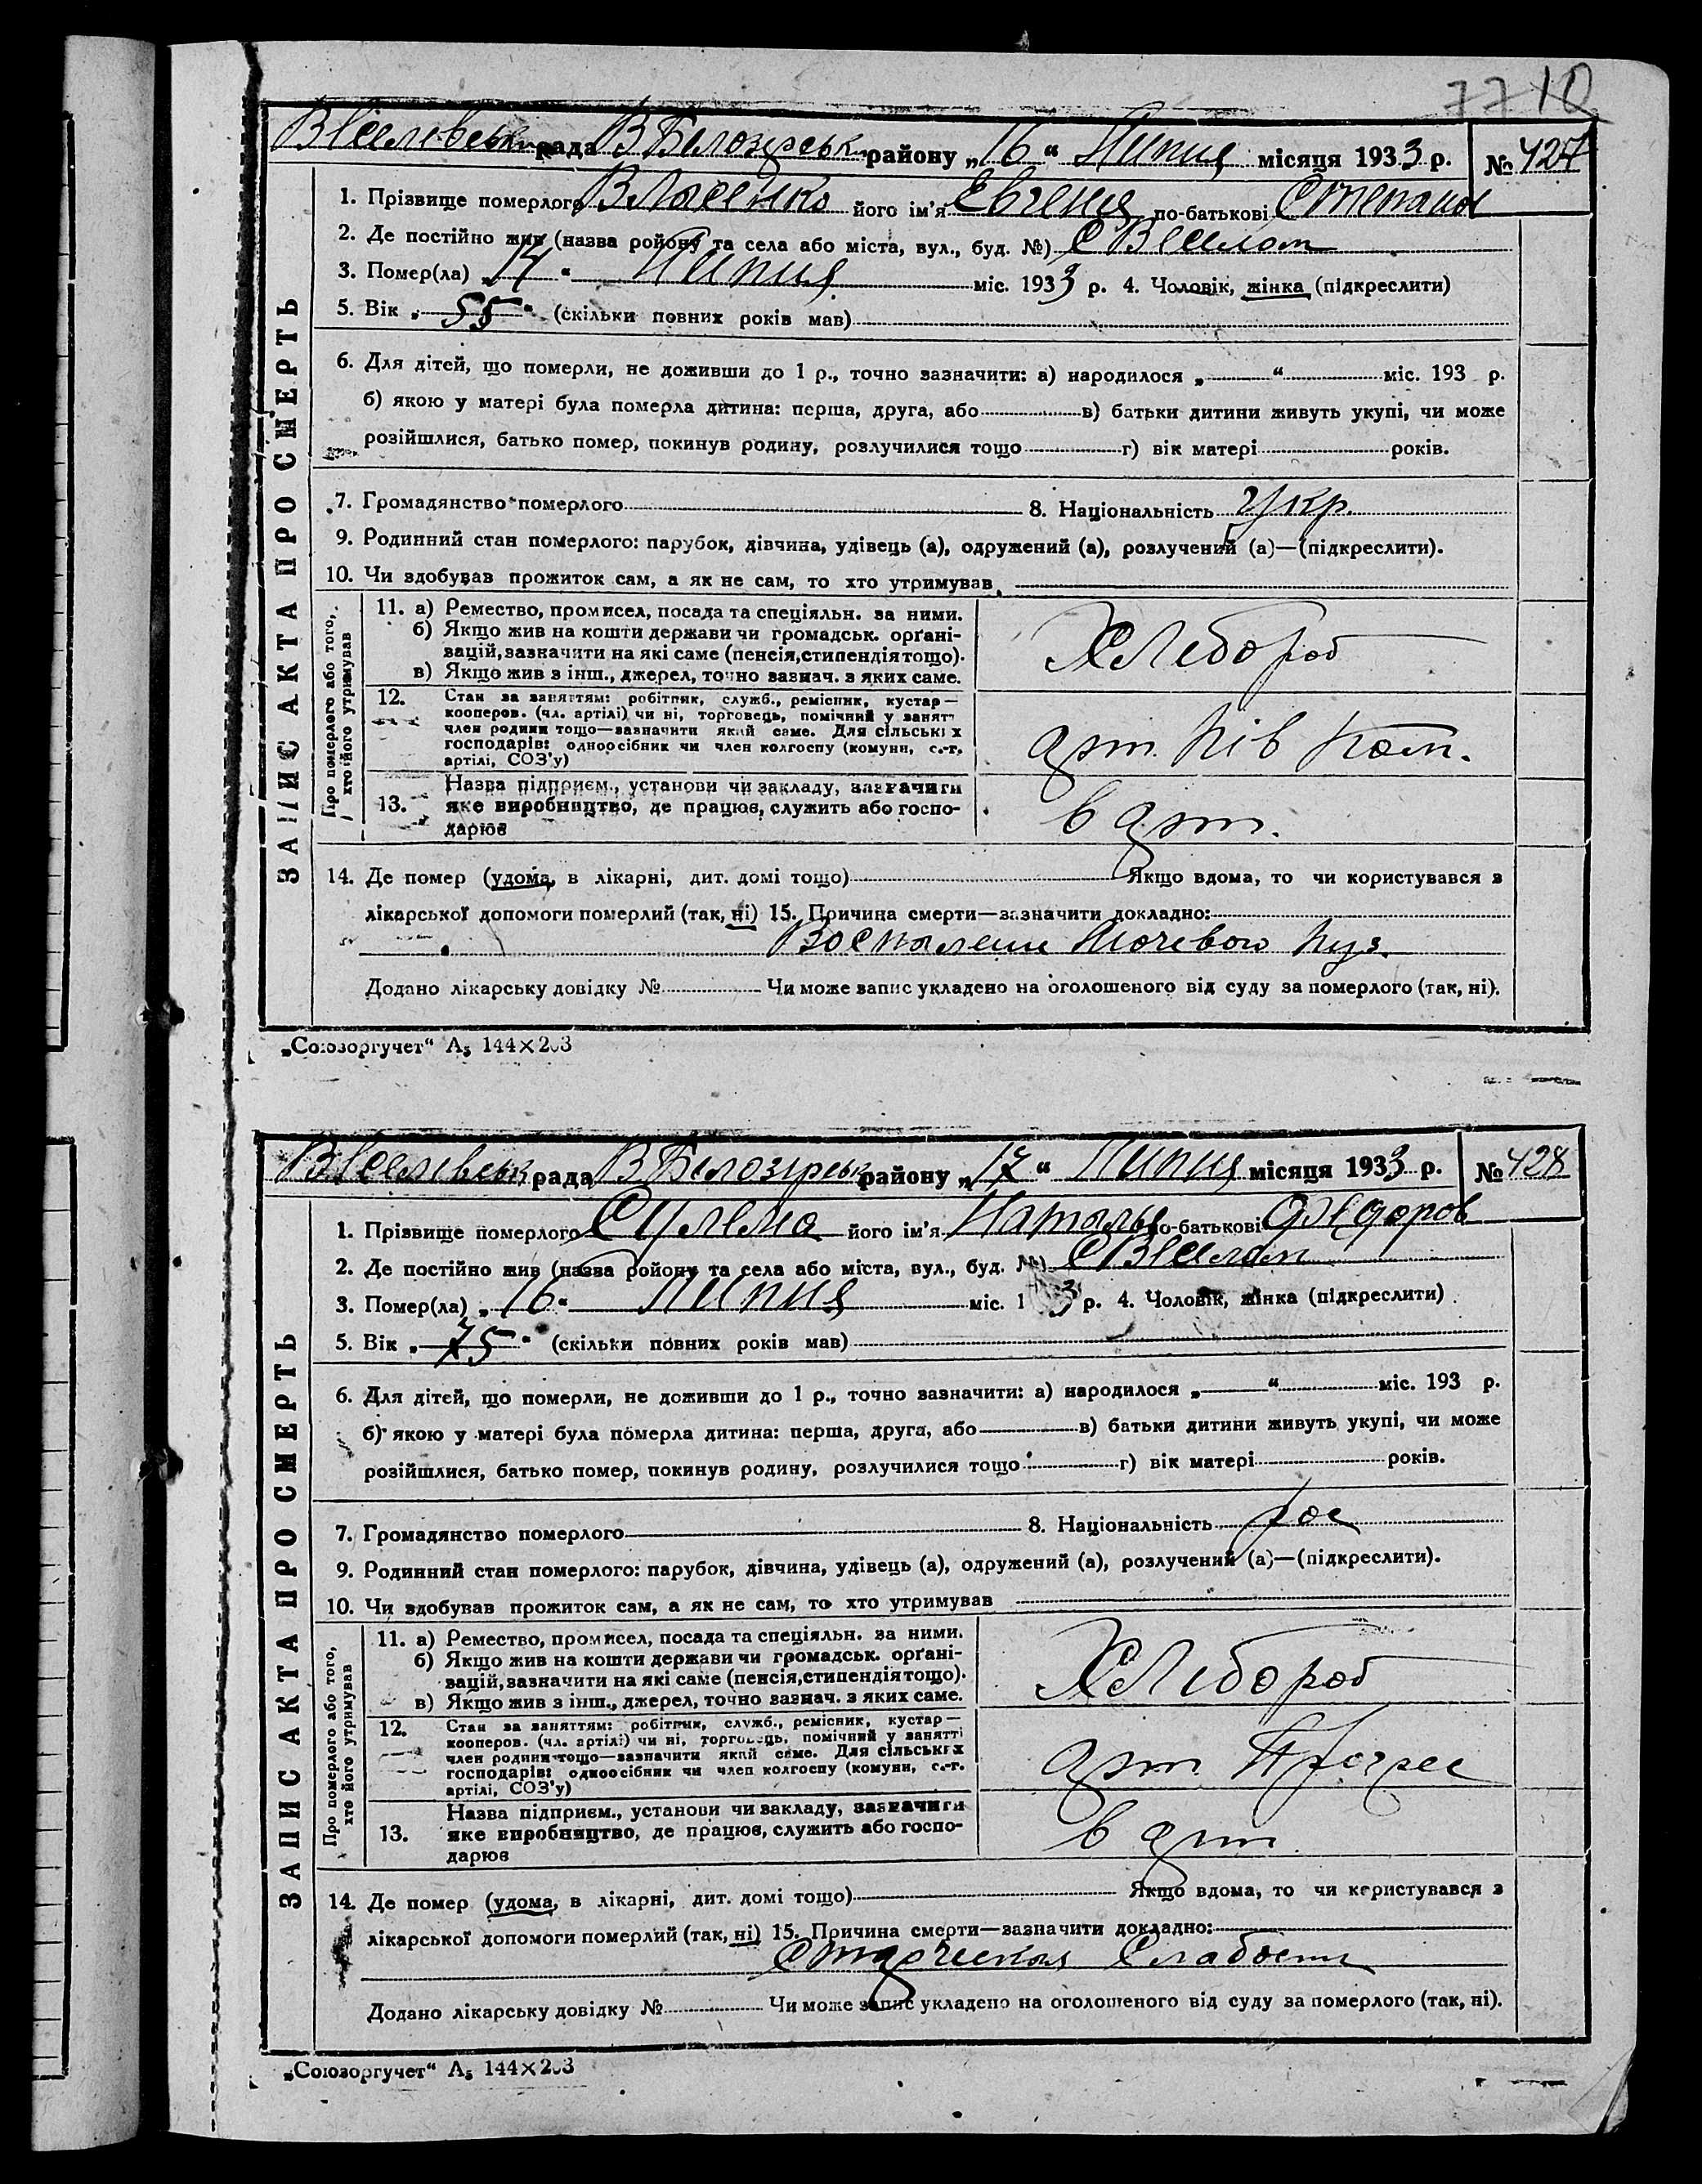 7710
Веселівськ рада В Білозірськ району „16“ Липня місяця 1933 р. № 427
1. Прізвище померлого Власенко його ім'я Евгения по-батькові Степанов
2. Де постійно жив (назва ройону та села або міста, вул., буд. №) с
3. Помер(ла) „14“ Липня міс. 1933 р. 4. Чоловік, жінка (підкреслити)
5. Вік „55“ (скільки повних років мав)
6. Для дітей, що померли, не доживши до 1 р., точно зазначити: а) народилося „ “ міс. 193 р.
б) якою у матері була померла дитина: перша, друга, або в) батьки дитини живуть укупі, чи може
розійшлися, батько помер, покинув родину, розлучилися тощо г) вік матері років.
7. Громадянство померлого 8. Національність укр.
9. Родинний стан померлого: парубок, дівчина, удівець (а), одружений (а), розлучений (а)—(підкреслити).
10. Чи здобував прожиток сам, а як не сам, то хто утримував
ЗАПИС АКТА ПРО СМЕРТЬ
Про померлого або того,
хто його утримував
11. а) Ремество, промисел, посада та спеціяльн. за ними.
б) Якщо жив на кошти держави чи громадськ. орґані-
зацій, зазначити на які саме (пенсія, стипендія тощо).
в) Якщо жив з інш., джерел, точно зазнач. з яких саме.
Хлебороб
12. Стан за заняттям: робітник, служб., ремісник, кустар—
кооперов. (чл. артілі) чи ні, торговець, помічний у занятт
член родини тощо—зазначити який саме. Для сільських
господарів: одноосібник чи член колгоспу (комуни, с.-г.
артілі, СОЗ'у)
арт.
13. Назва підприєм., установи чи закладу, зазначити
яке виробництво, де працює, служить або госпо-
дарює
в арт.
14. Де помер (удома, в лікарні, дит. домі тощо) Якщо вдома, то чи користувався з
лікарської допомоги померлий (так, ні) 15. Причина смерти—зазначити докладно:
Воспаление Мочевого пуз.
Додано лікарську довідку № Чи може запис укладено на оголошеного від суду за померлого (так, ні).
„Союзоргучет“ А5 144×203
Веселівськ рада В Білозірськ району „17“ Липня місяця 1933 р. № 428
1. Прізвище померлого його ім'я Наталья по-батькові Федоров
2. Де постійно жив (назва ройону та села або міста, вул., буд. №) с
3. Помер(ла) „16“ Липня міс. 1 3 р. 4. Чоловік, жінка (підкреслити)
5. Вік „75“ (скільки повних років мав)
6. Для дітей, що померли, не доживши до 1 р., точно зазначити: а) народилося „ “ міс. 193 р.
б) якою у матері була померла дитина: перша, друга, або в) батьки дитини живуть укупі, чи може
розійшлися, батько помер, покинув родину, розлучилися тощо г) вік матері років.
7. Громадянство померлого 8. Національність рос
9. Родинний стан померлого: парубок, дівчина, удівець (а), одружений (а), розлучений (а)—(підкреслити).
10. Чи здобував прожиток сам, а як не сам, то хто утримував
ЗАПИС АКТА ПРО СМЕРТЬ
Про померлого або того,
хто його утримував
11. а) Ремество, промисел, посада та спеціяльн. за ними.
б) Якщо жив на кошти держави чи громадськ. орґані-
зацій, зазначити на які саме (пенсія, стипендія тощо).
в) Якщо жив з інш., джерел, точно зазнач. з яких саме.
Хлебороб
12. Стан за заняттям: робітник, служб., ремісник, кустар—
кооперов. (чл. артілі) чи ні, торговець, помічний у занятті
член родини тощо—зазначити який саме. Для сільських
господарів: одноосібник чи член колгоспу (комуни, с.-г.
артілі, СОЗ'у)
арт. Прогрес
13. Назва підприєм., установи чи закладу, зазначити
яке виробництво, де працює, служить або госпо-
дарює
в арт
14. Де помер (удома, в лікарні, дит. домі тощо) Якщо вдома, то чи користувався з
лікарської допомоги померлий (так, ні) 15. Причина смерти—зазначити докладно:
Старческая Слабость
Додано лікарську довідку № Чи може запис укладено на оголошеного від суду за померлого (так, ні).
„Союзоргучет“ А5 144×203